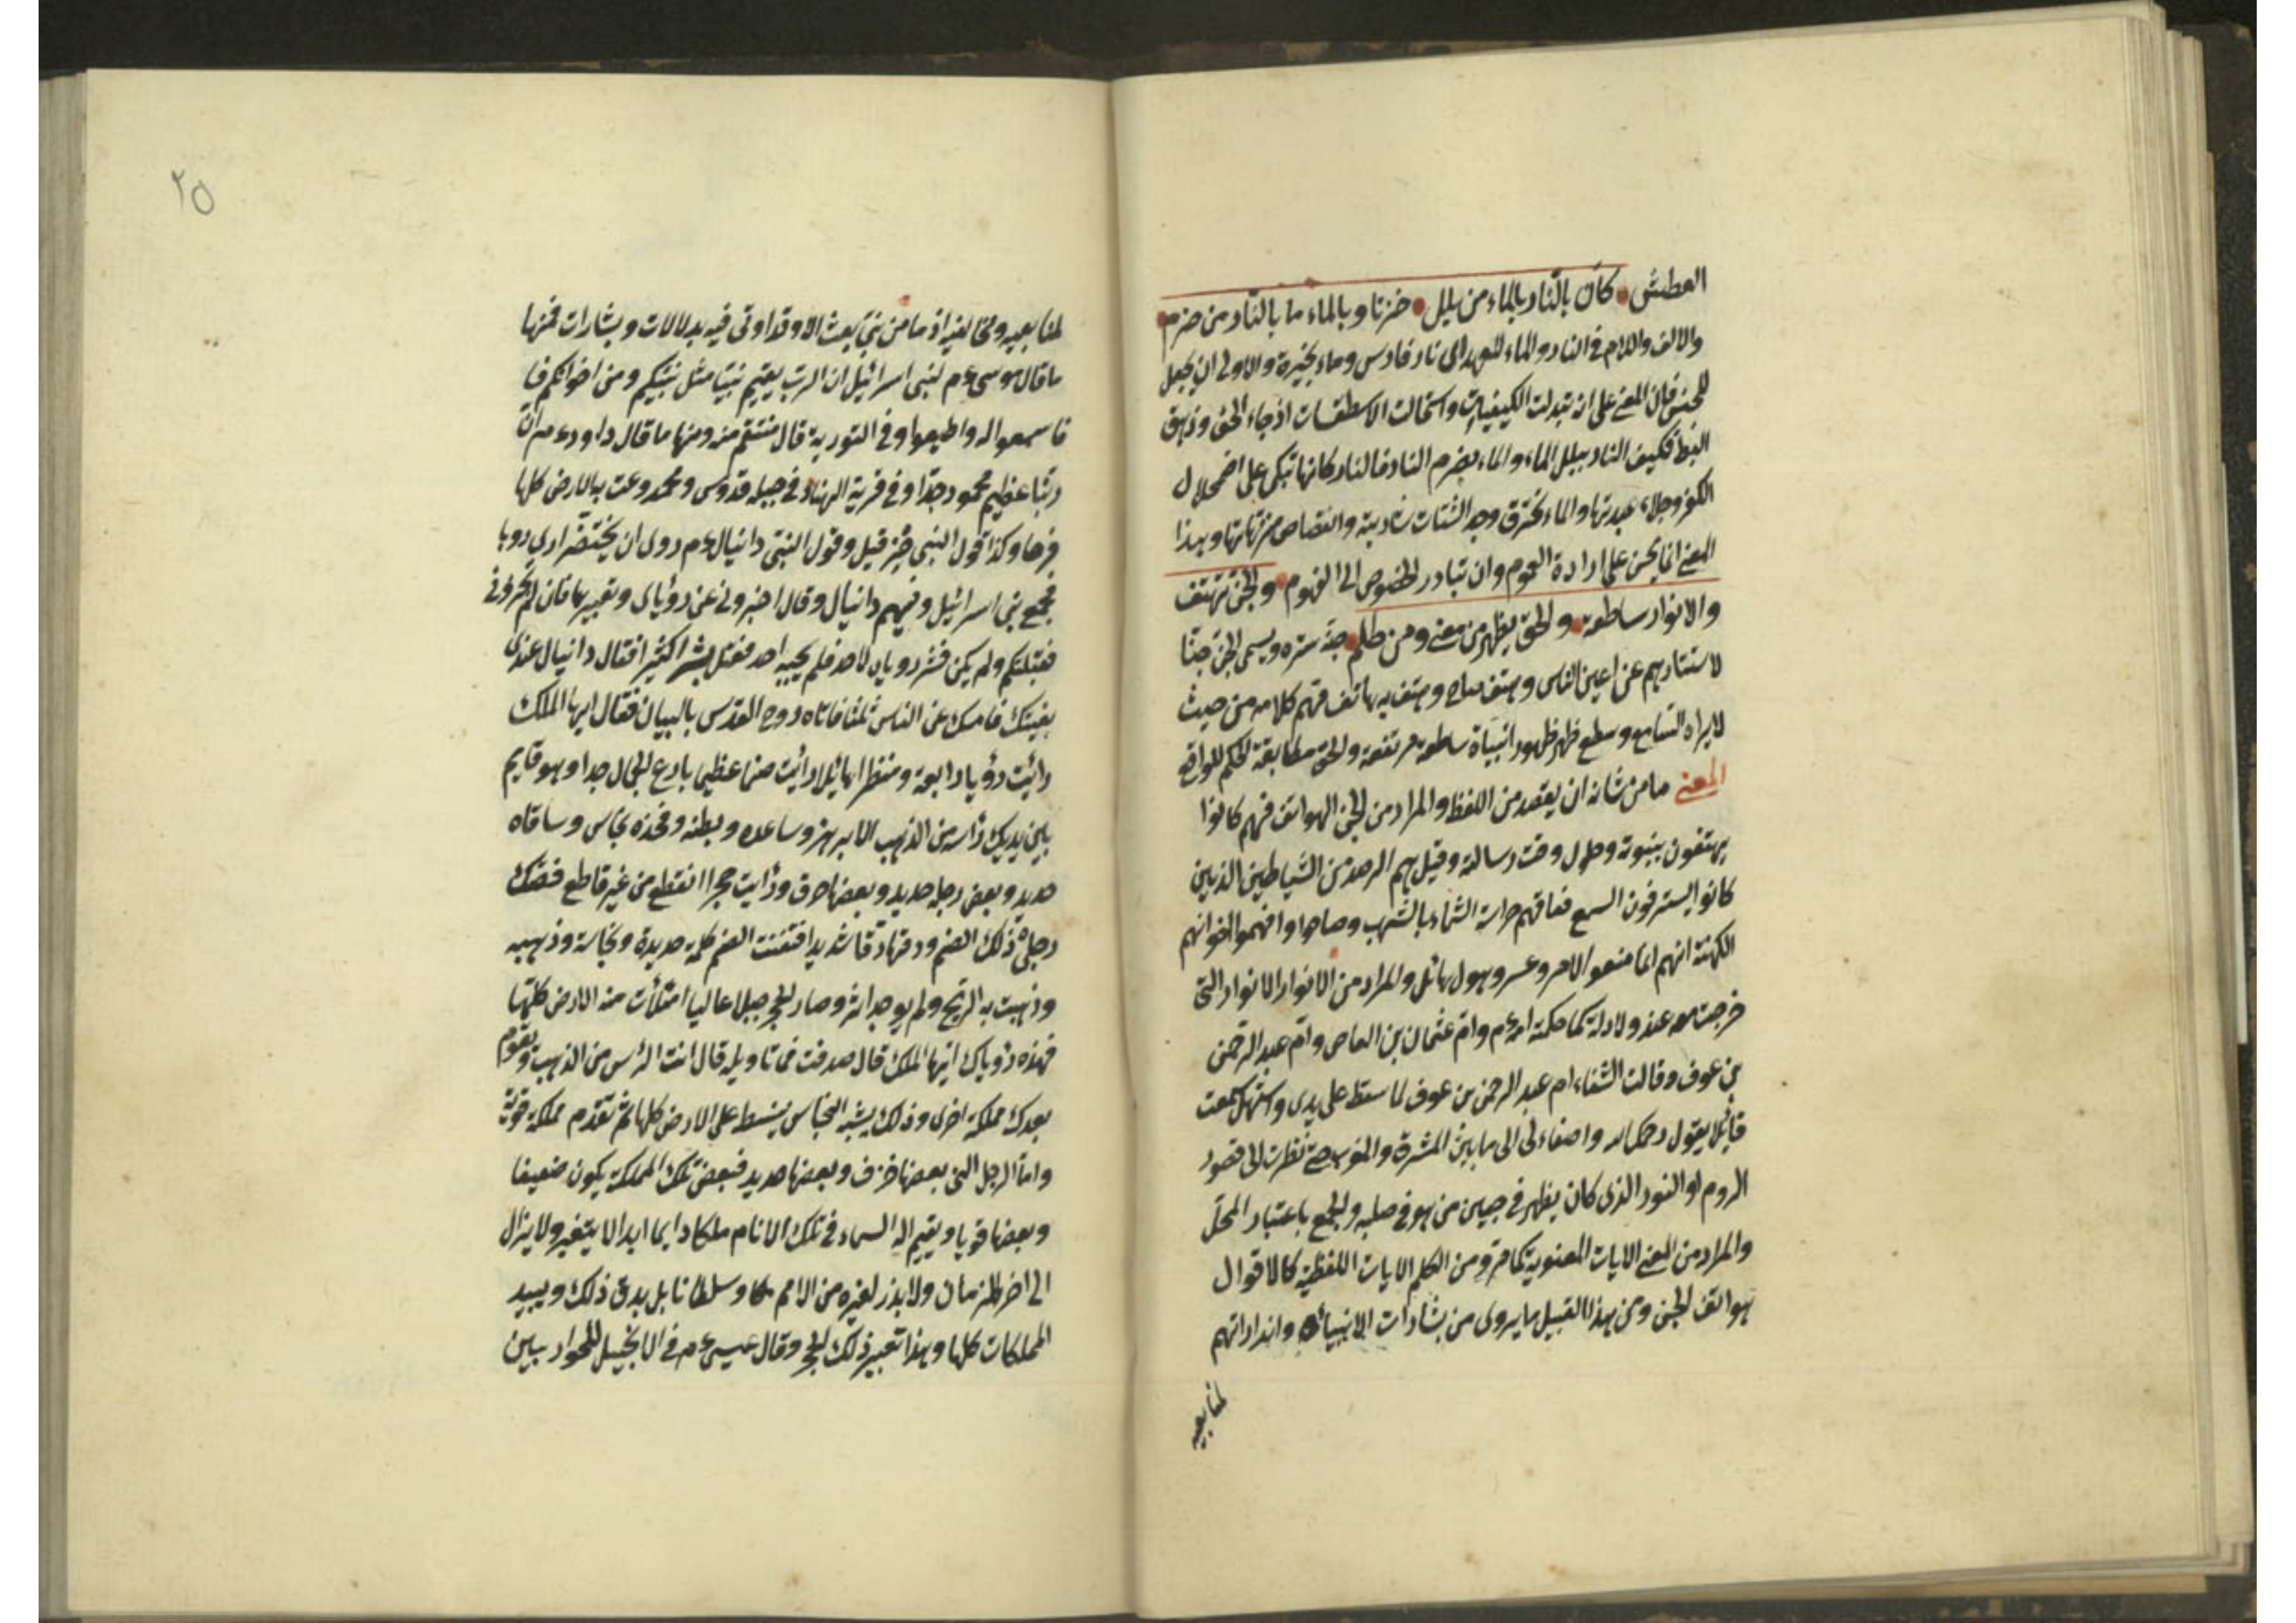 العطش كأن بالنار بالماء من بلل حزنا وبالماء ما بالنار من ضرم
والالف واللام في النار والماء للعهد اى نار فارس وماء بحيرة والاولى ان يجعل
للجنس فان المعنى على انه تبدلت الكيفيات واستحالت الاسطقسات اذ جاء الحق وزهق
البط فكيف النار ببلل الماء والماء بضرم النار فالنار كانها تبكى على اضمحلال
الكفر وجلاء عبدتها والماء يحترق وجد الشتات شاربية وانتقاص منزهاتها وبهذا
المعنى انما يحسن على ارادة العموم وان تبادر الخصوص الى الفهوم والجن تهتف
والانوار ساطعة والحق يظهر من معنى ومن كلم جنه ستره ويسمى الجن جنا
لاستتارهم عن اعين الناس وهتف صاح وهتف به هاتف فهم كلامه من حيث
لا يراه السامع وسطع ظهر ظهورا ساطعة مرتفعة والحق مطابقة الحكم للواقع
المعنى ما من شانه ان يقصد من اللفظ والمراد من الجن الهواتف فهم كانوا
يهتفون بنبوته وحلول وقت رسالته وقيل هم الرصد من الشياطين الذين
كانوا يسترقون السمع فعاقهم حراسة السماء بالشهب وصاحوا وافهموا اخوانهم
الكهنة انهم انما منعوا لامر وعسر وهول هائل والمراد من الانوار الانوار التى
خرجت معه عند ولادته كما حكته امه عم وام عثمان بن العاص وام عبد الرحمن
بن عوف وقالت الشفاء ام عبد الرحمن بن عوف لما سقط على يدى واستهل سمعت
قائلا يقول رحمك الله واضاء لى الى ما بين المشرق والمغرب حتى نظرت الى قصور
الروم او النور الذى كان يظهر في جبين من هو في صلبه والجمع باعتبار المحل
والمراد من المعنى الايات المعنوية كما مر ومن الكلم الايات اللفظية كالاقوال
هواتف الجن ومن هذا القبيل ما يروى من بشارات الانبياء وانذاراتهم
لمتابعيه
٢٥
لمتابعيه ومخالفيه اذ ما من نبى بعث الا وقد اوتى فيه بدلالات وبشارات فمنها
ما قال موسى عم لبنى اسرائيل ان الرب يقيم نبيا مثل نبيكم ومن اخوانكم
فاسمعوا له واطيعوا وفي التورية قال منتقم منه ومنها ما قال داود عم ان
ربنا عظيم محمود جدا وفي قرية الهنا وفي جبله قدوس ومحمد وعمت به الارض كلها
فرحا وكذا قول النبى حزقيل وقول النبى دانيال عم روى ان بختنصر ارى رويا
فجمع بنى اسرائيل وفيهم دانيال وقال اخبرونى عن رؤياى وتعبيرها فان لم تخبرونى
فقتلتكم ولم يكن فسر روياه لاحد فلم يجبه احد فقتل بشرا كثيرا فقال دانيال عندى
بغيتك فامسك عن الناس ثلثا فاتاه روح القدس بالبيان فقال ايها الملك
رايت رؤيا رابعة ومنظرا هائلا رايت صنما عظيما بارع الجمال جدا وهو قايم
بين يديك راسه من الذهب الابريز وساعده وبطنه وفخذه نحاس وساقاه
حديد وبعض رجله حديد وبعضها خزف ورايت حجرا انقطع من غير قاطع فصك
رجلى ذلك الصنم ودقها دقا شديدا فتفتت الصنم كله حديده ونحاسه وذهبه
وذهبت به الريح ولم يوجد اثره وصار الحجر جبلا عاليا امتلأت منه الارض كلها
فهذه رؤياك ايها الملك قال صدقت فما تاويله قال انت الرأس من الذهب ويقوم
بعدك مملكة اخرى وذلك يشبه النحاس يتسلط على الارض كلها ثم تقدم مملكة قوية
واما الرجل التى بعضها خزف وبعضها حديد فبعض تلك المملكة يكون ضعيفا
وبعضها قويا ويقيم اله السماء في تلك الانام ملكا دايما ابدا لا يتغير ولا يزال
الى اخر الزمان ولا يذر لغيره من الامم ملكا وسلطانا بل يدق ذلك ويبيد
المملكات كلها وهذا تعبير ذلك الحجر وقال عيسى عم في الانجيل للحواريين